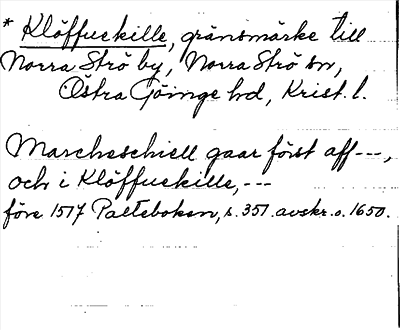 * Klöffuekille, gränsmärke till
Norra Strö by, Norra Strö sn,
Östra Göinge hd, Krist. l.
Marcheschiell gaar först aff ---,
och i Klöffuekille, ---
före 1517 Palteboken, s. 351. avskr. o. 1650.